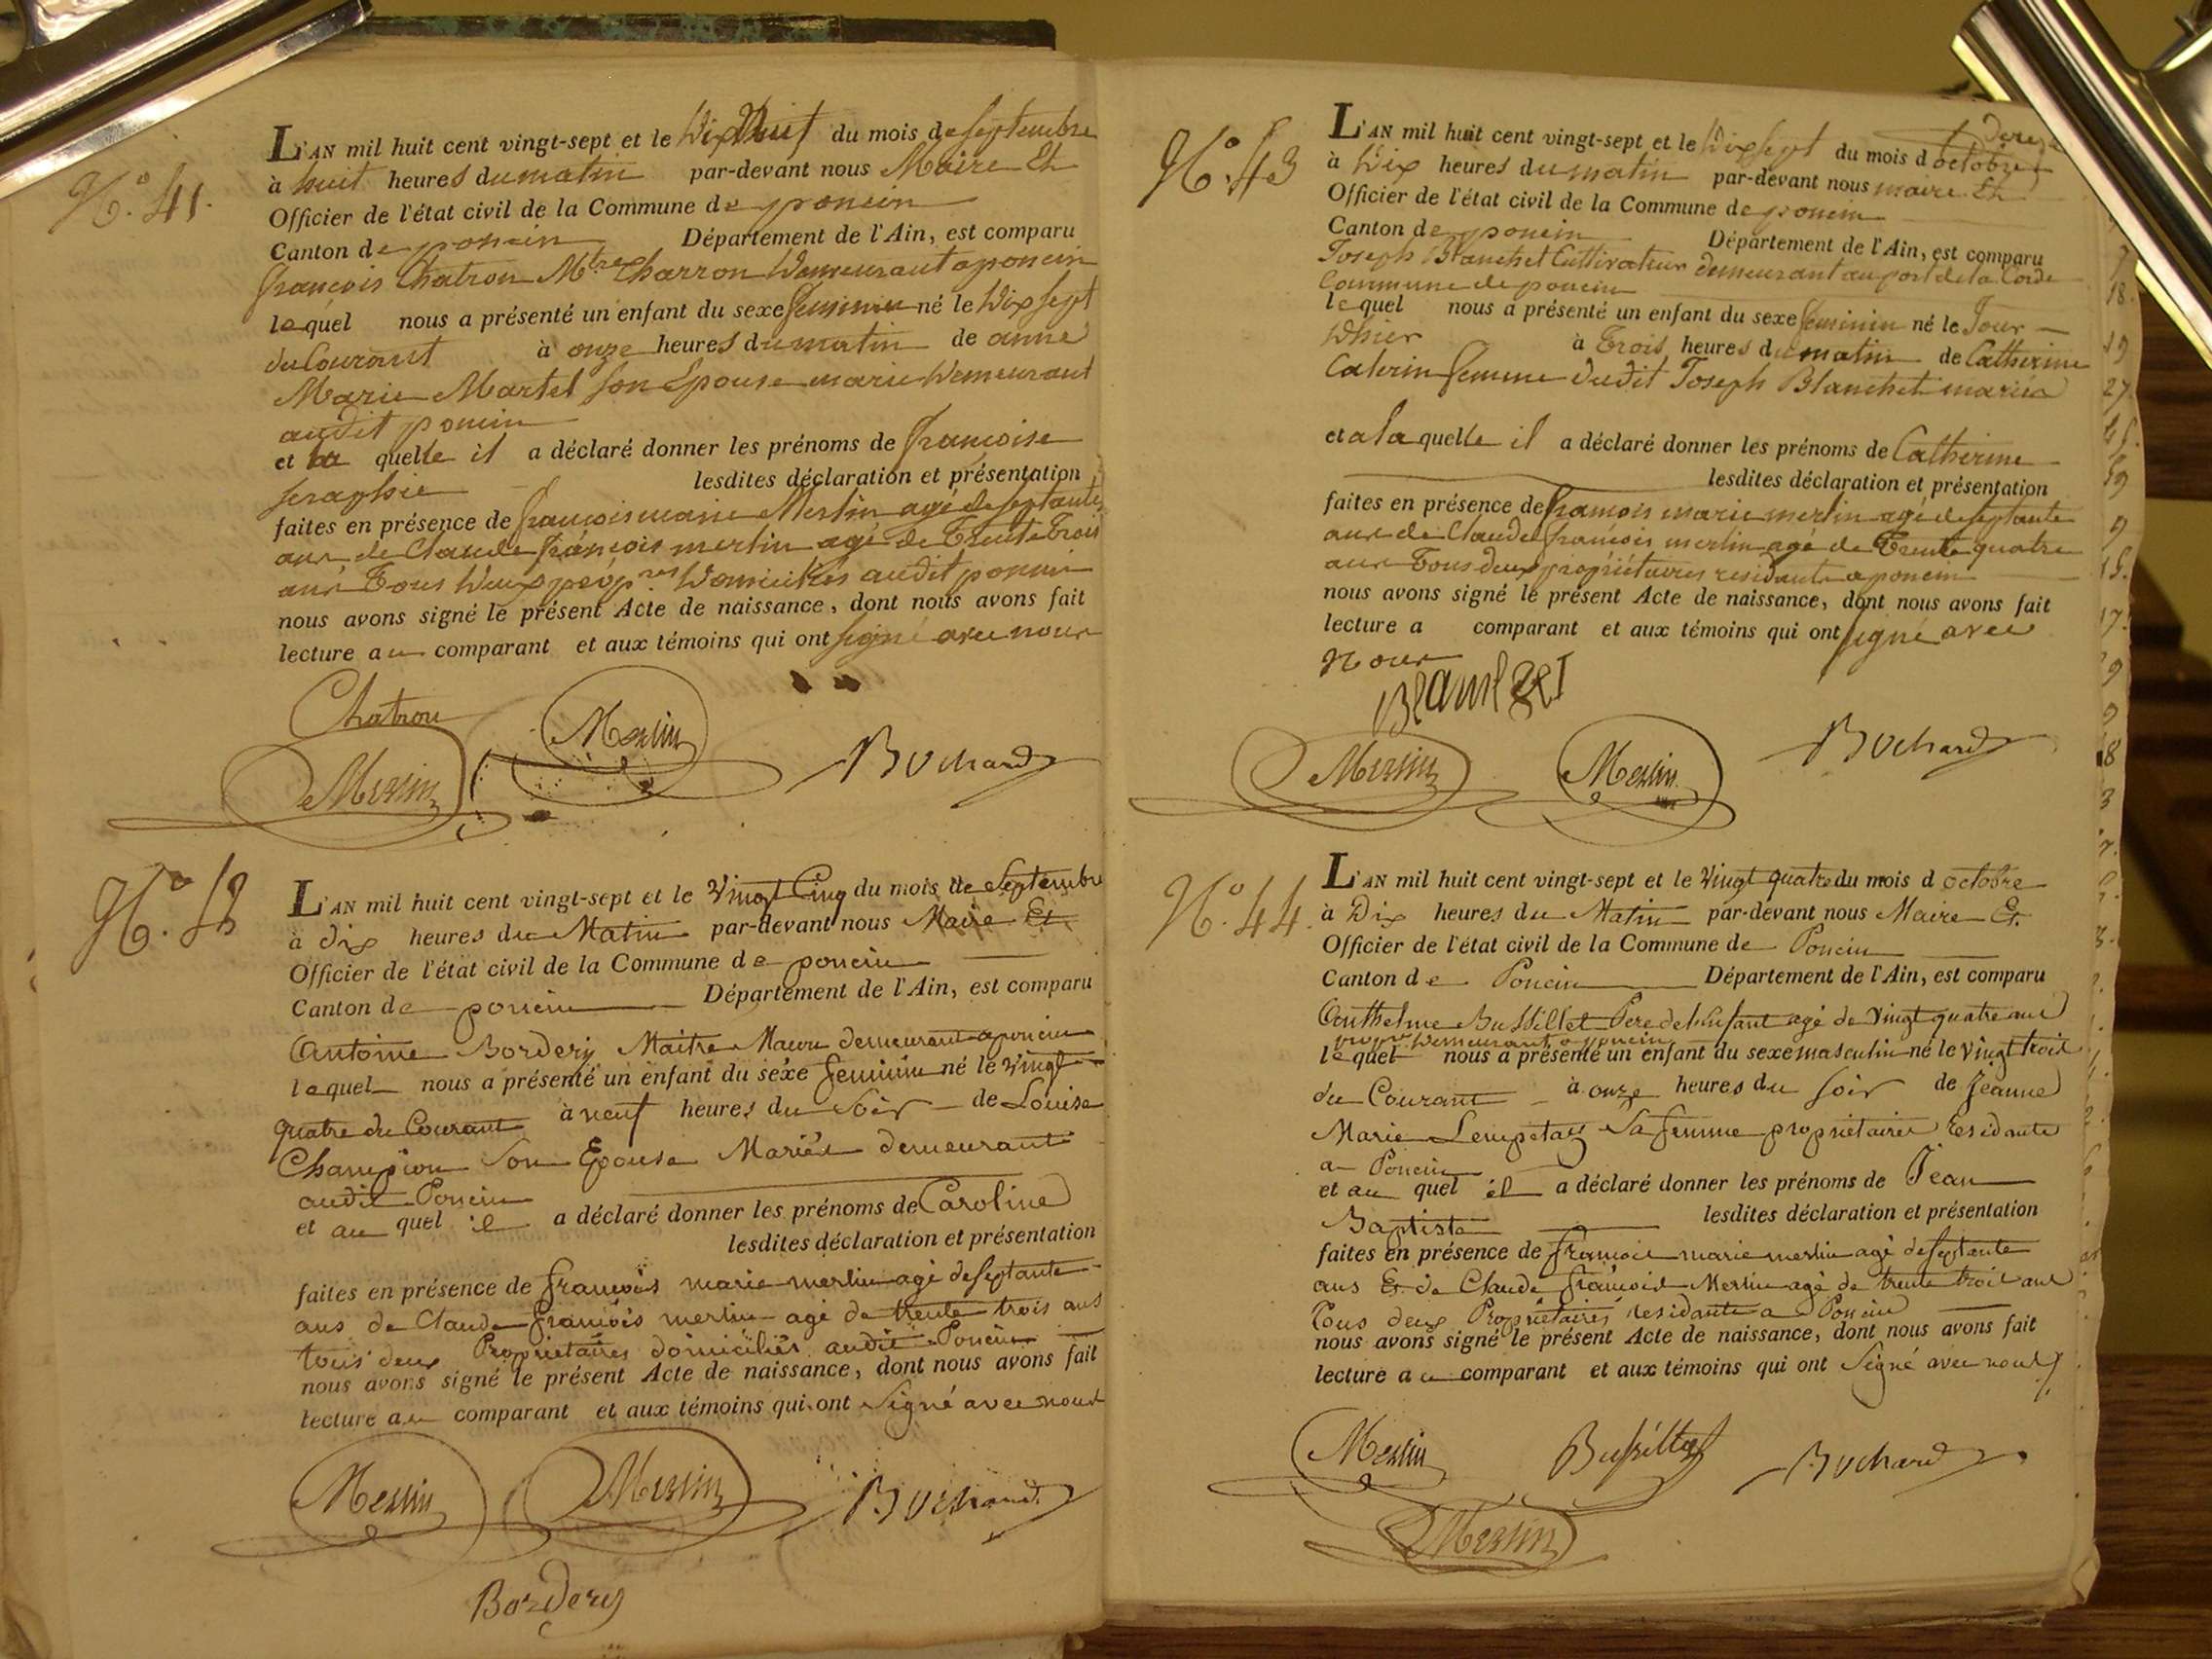 N.° 41.
L'AN mil huit cent vingt-sept et le Dix Huit du mois de Septembre
à huit heures du matin par-devant nous Maire Et
Officier de l'état civil de la Commune de poncin
Canton de poncin Département de l'Ain, est comparu
françois Chatron Mtre Charron Demeurant a poncin
lequel nous a présenté un enfant du sexe feminin né le Dix sept
du Courant à onze heures du matin de anne
Marie Martel son Epouse marié Demeurant
audit poncin
et la quelle il a déclaré donner les prénoms de françoise
seraphie lesdites déclaration et présentation
faites en présence de françois marie Merlin agé de septante
ans de Claude françois merlin agé de Trente trois
ans Tous Deux Domiciliés audit poncin
nous avons signé le présent Acte de naissance, dont nous avons fait
lecture au comparant et aux témoins qui ont signé avec nous
Chatron
Merlin
Merlin
Bochard
N.° 42
L'AN mil huit cent vingt-sept et le Vingt Cinq du mois de Septembre
à dix heures du Matin par-devant nous Maire Et
Officier de l'état civil de la Commune de poncin
Canton de poncin Département de l'Ain, est comparu
Antoine Bordery Maitre Macon demeurant a poncin
lequel nous a présenté un enfant du sexe feminin né le vingt
quatre du Courant à neuf heures du Soir de Louise
Champion Son Epouse Mariés demeurant
audit Poncin
et au quel il a déclaré donner les prénoms de Caroline
lesdites déclaration et présentation
faites en présence de françois marie merlin agé de septante
ans de Claude françois merlin agé de trente trois ans
tous deux Propriétaires domiciliés audit Poncin
nous avons signé le présent Acte de naissance, dont nous avons fait
lecture au comparant et aux témoins qui ont Signé avec nous
Merlin
Merlin
Bochard
Bordery
N.° 43
L'AN mil huit cent vingt-sept et le Dix sept du mois d octobre
à Dix heures du matin par-devant nous maire Et
Officier de l'état civil de la Commune de poncin
Canton de poncin Département de l'Ain, est comparu
Joseph Blanchet Cultivateur demeurant au port de la Corde
Commune de poncin
lequel nous a présenté un enfant du sexe feminin né le Jour
D'hier à Trois heures du matin de Catherine
Caterin femme dudit Joseph Blanchet mariés
et a la quelle il a déclaré donner les prénoms de Catherine
lesdites déclaration et présentation
faites en présence de françois marie merlin agé de septante
ans de Claude françois merlin agé de Trente quatre
ans Tous deux propriétaires residants a poncin
nous avons signé le présent Acte de naissance, dont nous avons fait
lecture a comparant et aux témoins qui ont signé avec
Nous
Merlin
Merlin
Bochard
N.° 44.
L'AN mil huit cent vingt-sept et le Vingt quatre du mois d octobre
à Dix heures du Matin par-devant nous Maire Et
Officier de l'état civil de la Commune de Poncin
Canton de Poncin Département de l'Ain, est comparu
Anthelme Bussillet Pere de l'Enfant agé de Vingt quatre ans
Demeurant a poncin
lequel nous a présenté un enfant du sexe masculin né le vingt trois
du Courant à onze heures du Soir de Jeanne
Marie Lempetaz Sa femme propriétaires residants
a Poncin
et au quel il a déclaré donner les prénoms de Jean
Baptiste lesdites déclaration et présentation
faites en présence de françois marie merlin agé de Septante
ans Et de Claude françois Merlin agé de trente trois ans
Tous deux Propriétaires residants a Poncin
nous avons signé le présent Acte de naissance, dont nous avons fait
lecture au comparant et aux témoins qui ont Signé avec nous
Merlin
Bussillet
Bochard
Merlin